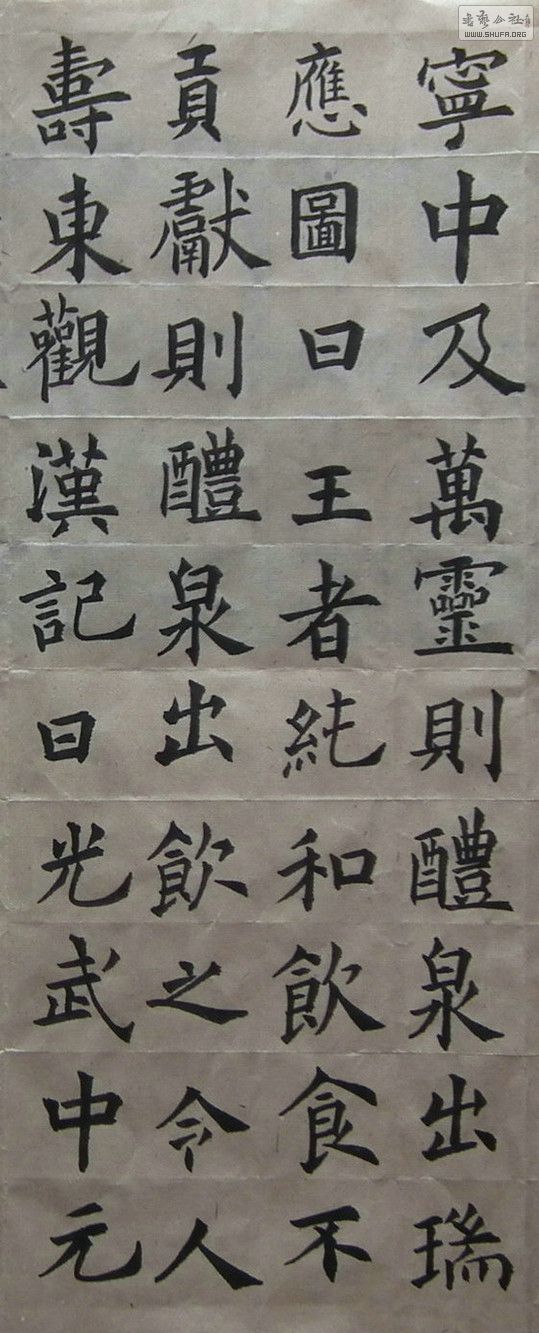 寧中及萬靈則醴泉出瑞
應圖曰王者純和飲食不
貢獻則醴泉出飲之令人
壽東觀漢記曰光武中元
WWW.SHUFA.ORG